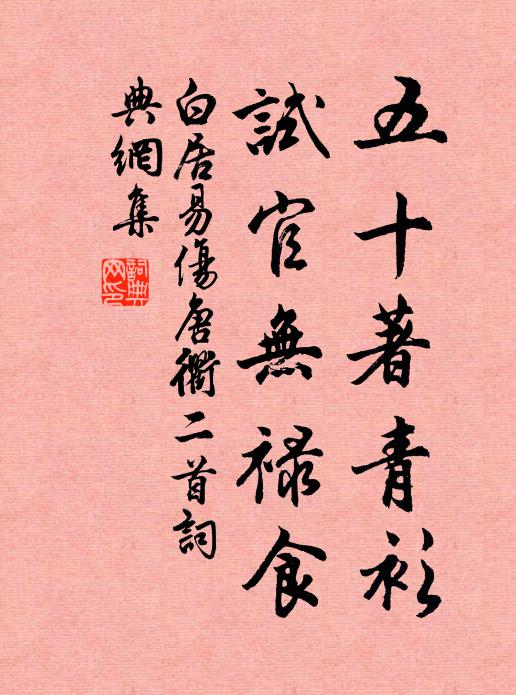 五十著青衫
試官無祿食
白居易傷唐衢二首詞
典網集
詞典
网印